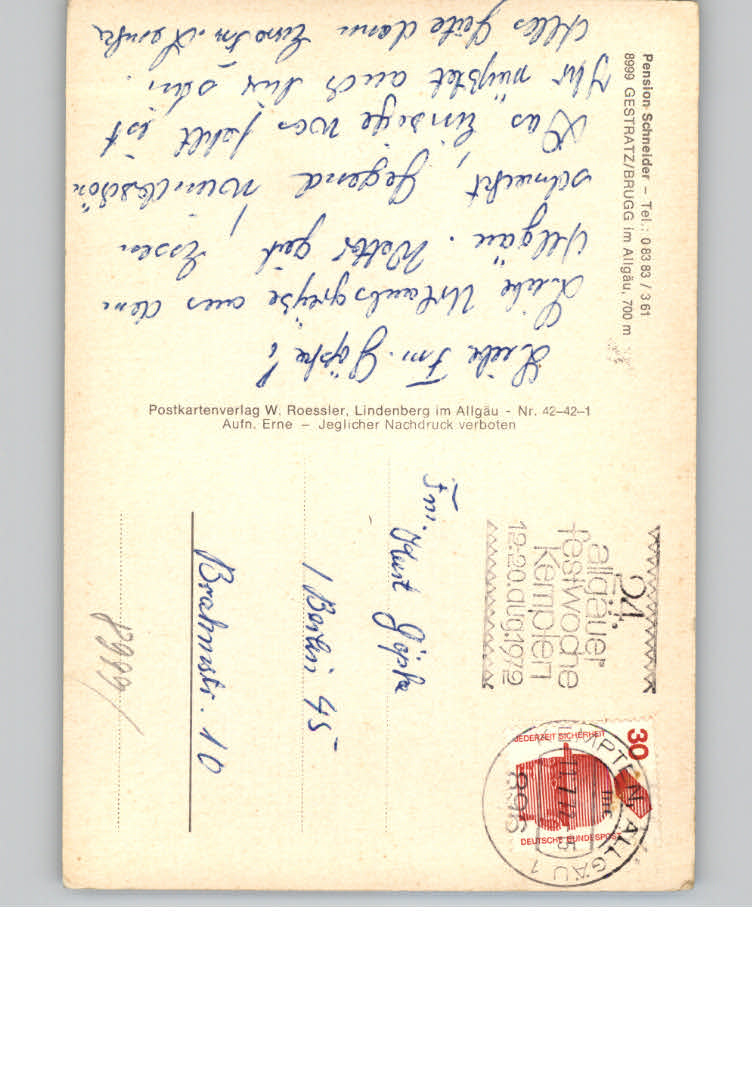 Pension Schneider – Tel.: 0 83 83 / 3 61
8999 GESTRATZ/BRUGG im Allgäu, 700 m
Liebe Fm. Göpke!
Liebe Urlaubsgrüße aus dem
Allgäu. Wetter gut, Essen
schmeckt, Gegend wunderschön
Das Einzige was fehlt ist
Ihr müßtet auch hier sein.
Alles Gute dann Eure Fm.
Postkartenverlag W. Roessler, Lindenberg im Allgäu - Nr. 42–42–1
Aufn. Erne – Jeglicher Nachdruck verboten
24.
allgäuer
festwoche
kempten
12.-20.aug.1972
30
JEDERZEIT SICHERHEIT
DEUTSCHE BUNDESPOST
KEMPTEN, ALLGÄU 1
896
Fm.
Göpke
1 Berlin 45
Brahmstr. 10
8999/